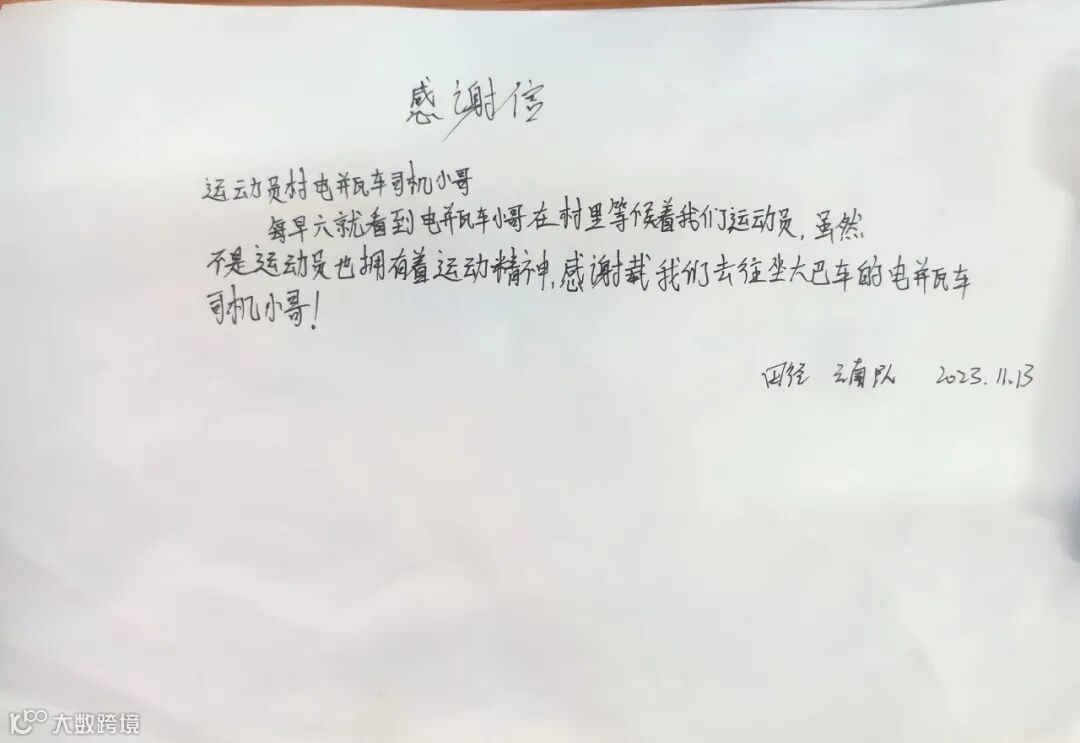 感谢信
运动员村电并瓦车司机小哥
每早六就看到电并瓦车小哥在村里等候着我们运动员,虽然
不是运动员也拥有着运动精神,感谢载我们去往坐大巴车的电并瓦车
司机小哥!
田径 云南队 2023.11.13
大数跨境